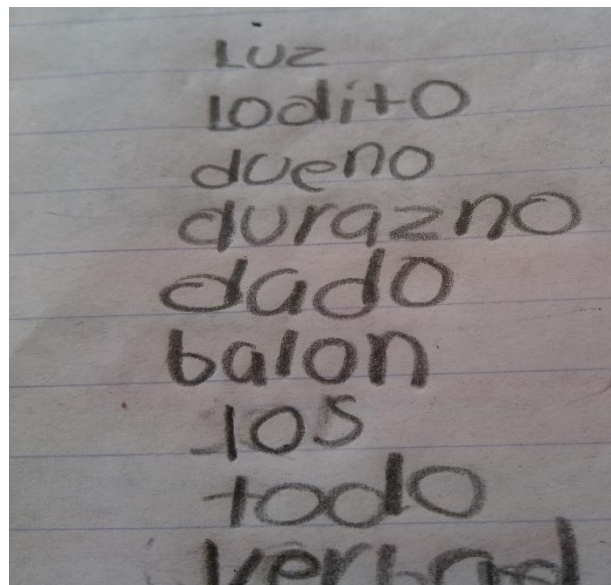 Luz
Lodito
dueno
durazno
dado
balon
los
todo